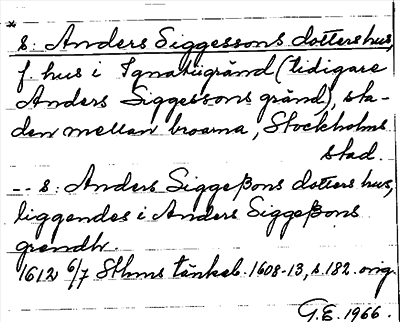 * s: Anders Siggessons dotters hus,
f. hus i Ignatiigränd (tidigare
Anders Siggessons gränd), sta-
den mellan broarna, Stockholms
stad.
-- s: Anders Siggeßons dotters hus,
liggendes i Anders Siggeßons
grendh.
1612 6/7 Sthms tänkeb. 1608-13, s. 182. orig.
G.E. 1966.